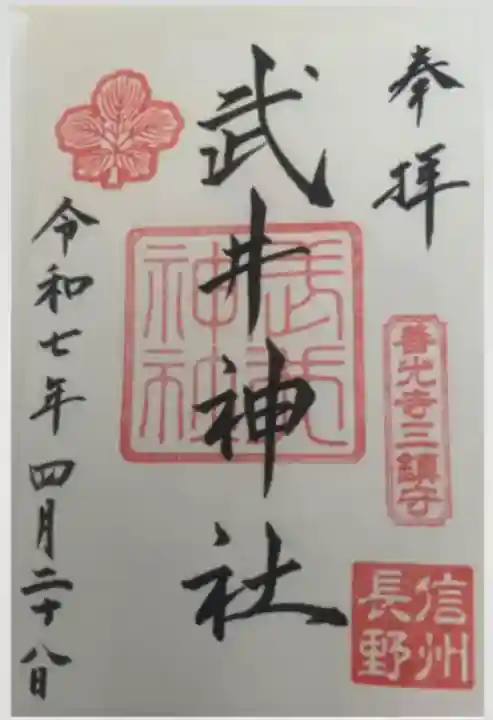 奉拝
善光寺三鎮守
信州
長野
武井神社
令和七年四月二十八日